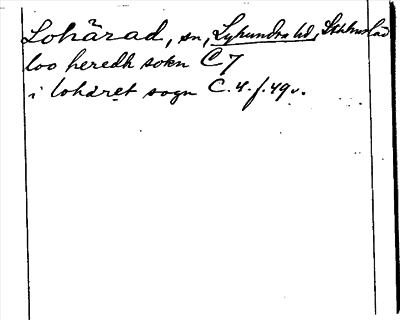 Lohärad, sn, Lyhundra hd, Sthlms län
loo heredh sokn C 7
i lohäret sogn C. 4. f. 49 v.